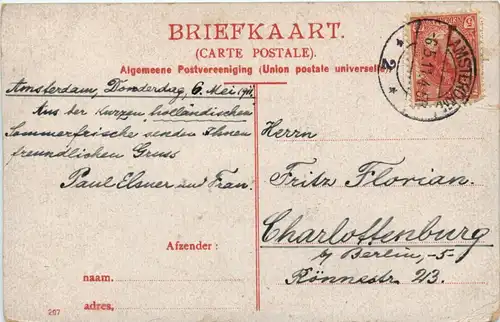 BRIEFKAART.
(CARTE POSTALE).
Algemeene Postvereeniging (Union postale universelle)
AMSTERDAM
2
5
Amsterdam, Donderdag, 6. Mei 1911.
Aus der kurzen holländischen
Sommerfrische senden Ihnen
freundlichen Gruss
Paul Elsner und Frau.
Herrn
Fritz Florian.
Charlottenburg
b/ Berlin,-5-
Rönnestr. 23.
Afzender :
naam.
adres,
267